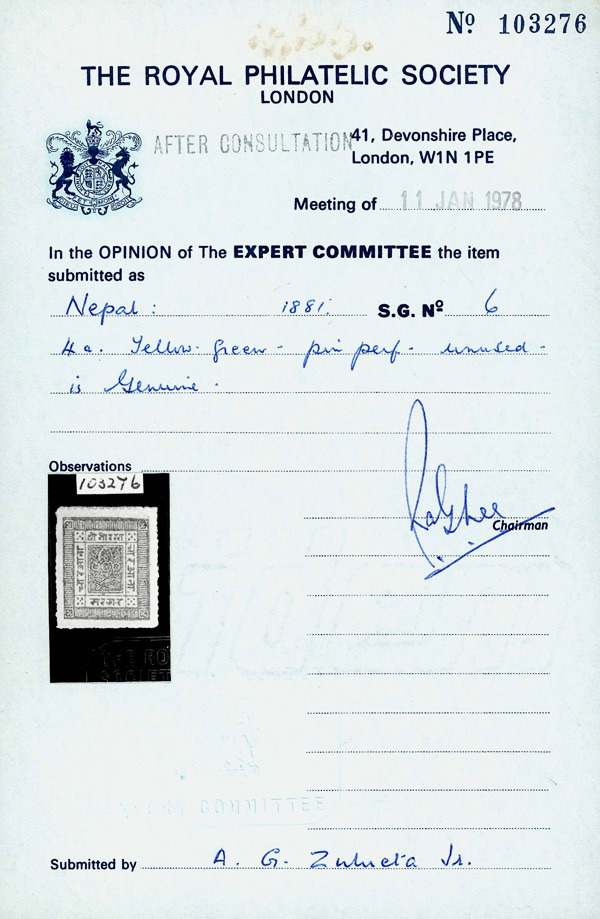 Nº 103276
THE ROYAL PHILATELIC SOCIETY
LONDON
AFTER CONSULTATION
41, Devonshire Place,
London, W1N 1PE
Meeting of 11 JAN 1978
In the OPINION of The EXPERT COMMITTEE the item
submitted as
Nepal: 1881. S.G. Nº 6
4a. Yellow-green - pin perf- unused -
is Genuine.
Observations
103276
श्री
सरकार
THE RO
SOCIET
Chairman
COMMITTEE
Submitted by A. G. Zulueta Jr.